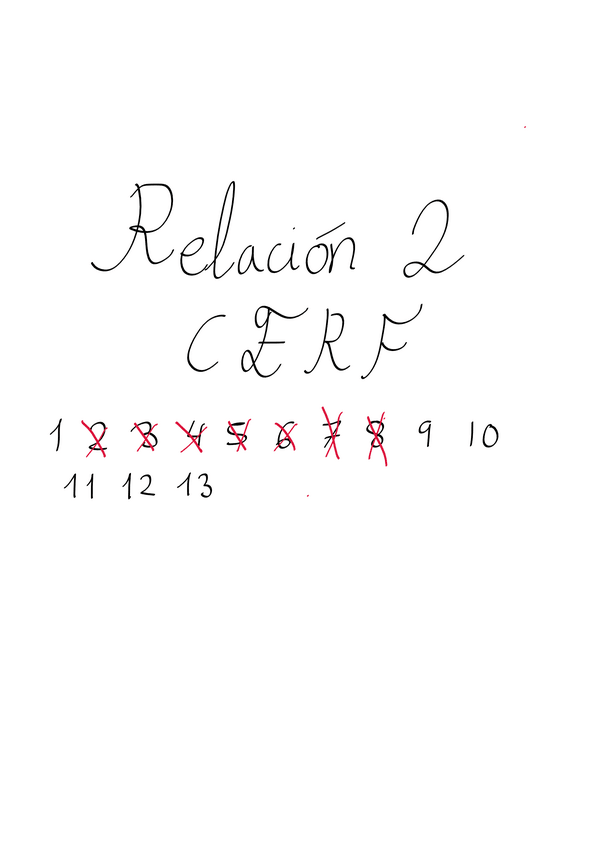 Relación 2
CERF
1 2 3 4 5 6 7 8 9 10
11 12 13